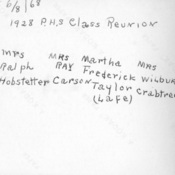 6/8/68
1928 P.H.S Class Reunion
Mrs Mrs Martha Mrs
Ralph Ray Frederick Wilbur
Hobstetter Carson Taylor Crabtree
(Lafe)